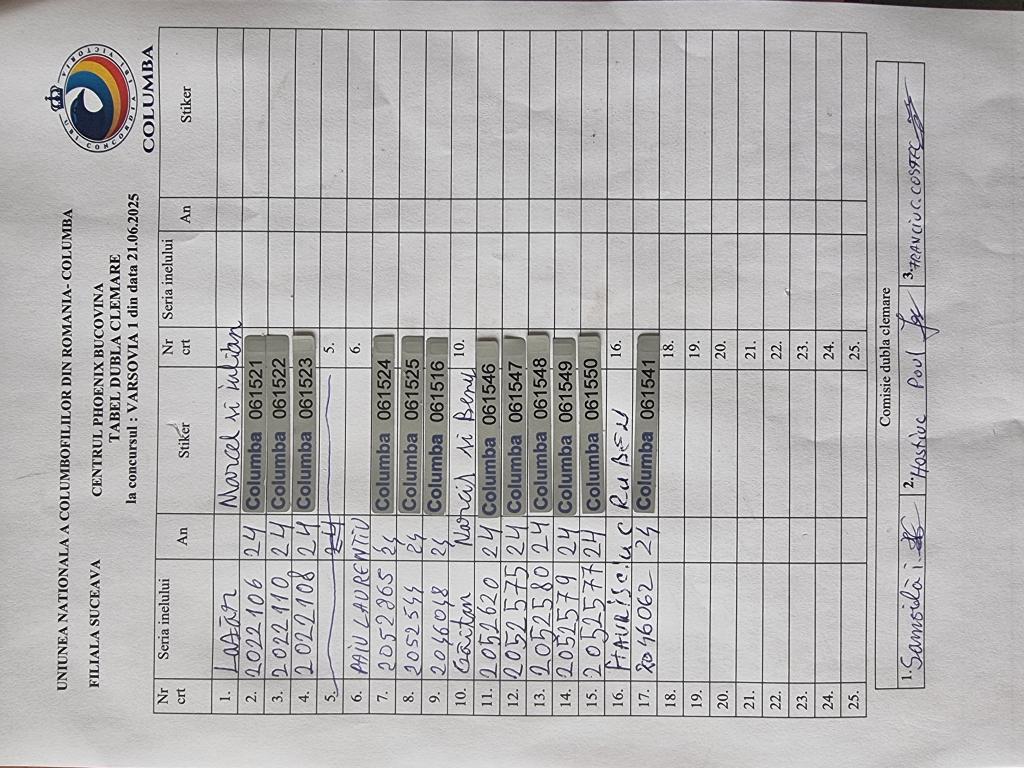 UNIUNEA NATIONALA A COLUMBOFILILOR DIN ROMANIA- COLUMBA
FILIALA SUCEAVA CENTRUL PHOENIX BUCOVINA
TABEL DUBLA CLEMARE
la concursul : VARSOVIA 1 din data 21.06.2025
UBI CONCORDIA IBI VICTORIA
COLUMBA
Nr crt Seria inelului An Stiker Nr crt Seria inelului An Stiker
1. Lazăr Marcel si iulian
2. 2022106 24 Columba 061521
3. 2022110 24 Columba 061522
4. 2022108 24 Columba 061523
5. 24 5.
6. PAIU LAURENTIU 6.
7. 2052265 24 Columba 061524
8. 2052544 24 Columba 061525
9. 2046048 24 Columba 061516
10. Găităn Narcis si Beny 10.
11. 2052620 24 Columba 061546
12. 2052575 24 Columba 061547
13. 2052580 24 Columba 061548
14. 2052579 24 Columba 061549
15. 2052577 24 Columba 061550
16. HAVRISCIUC RUBEN 16.
17. 2046062 24 Columba 061541
18. 18.
19. 19.
20. 20.
21. 21.
22. 22.
23. 23.
24. 24.
25. 25.
Comisie dubla clemare
1. Samoilă i 2. Hostiuc Paul 3. FRANCIUC COSTEL